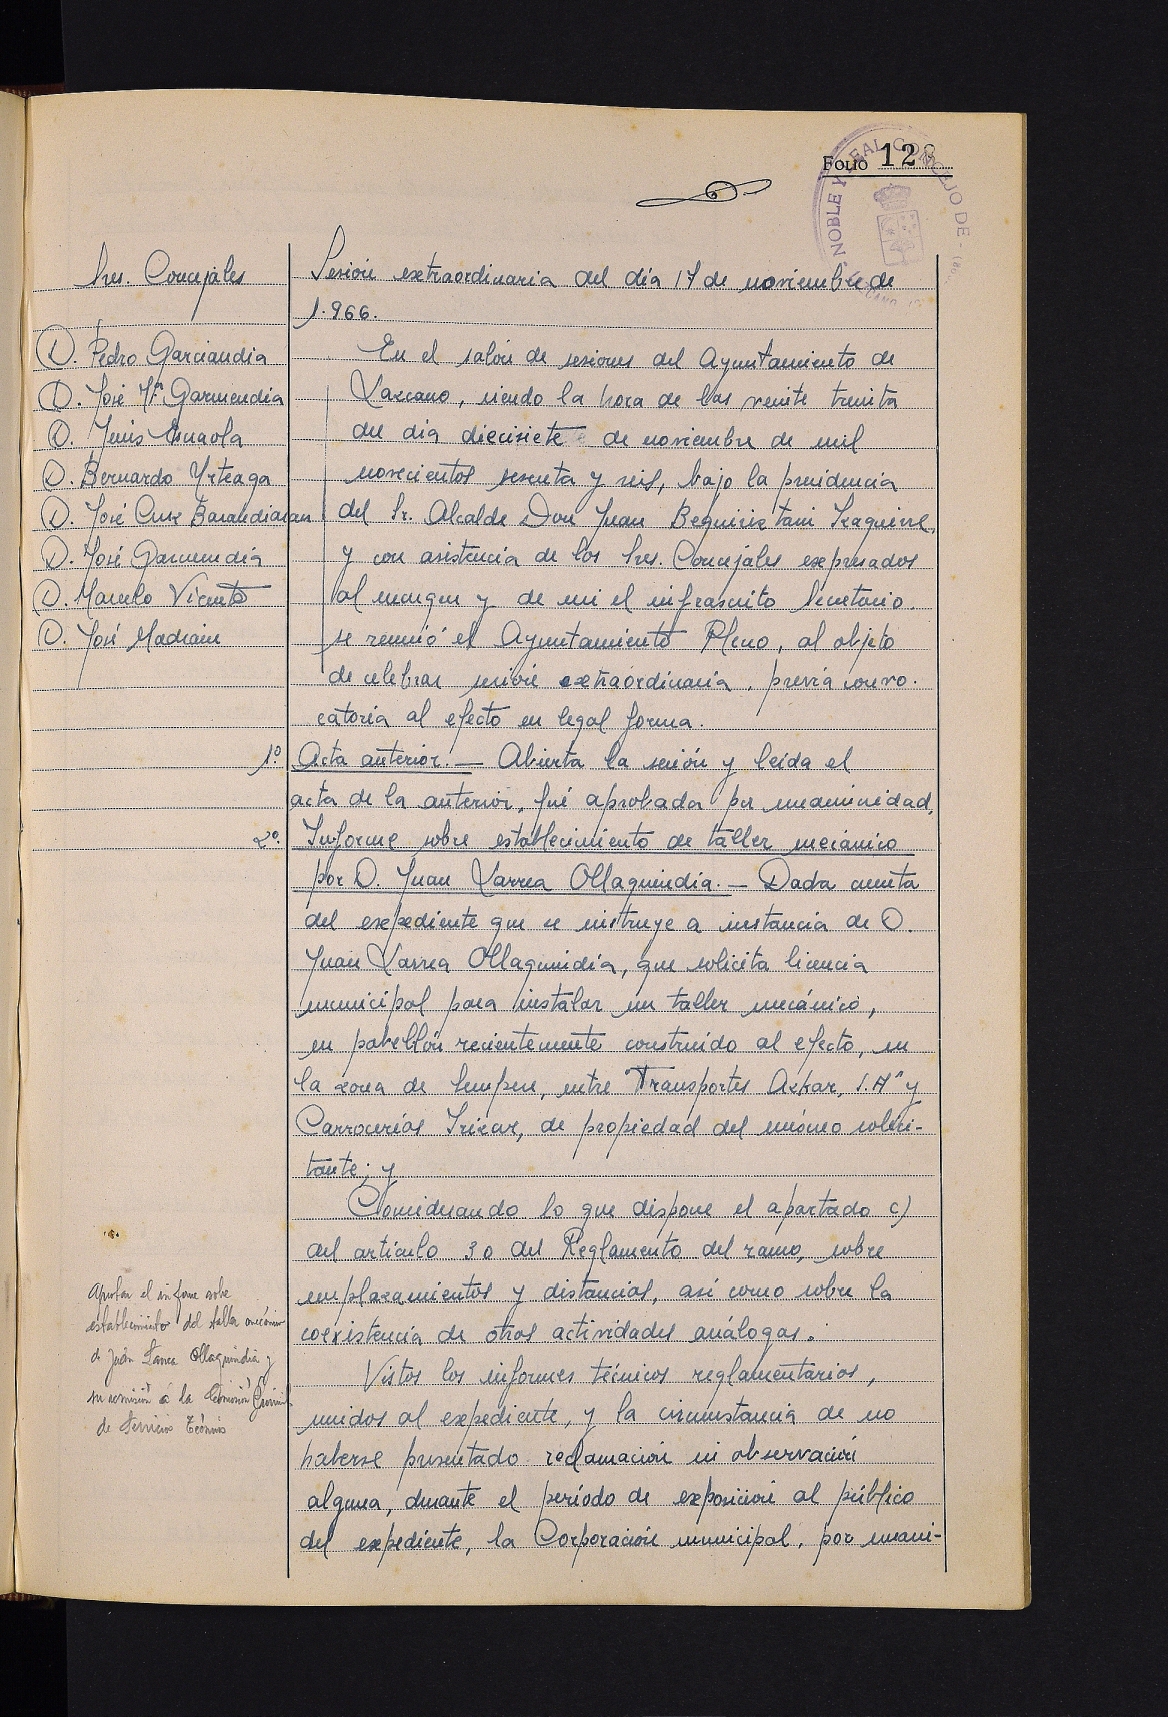 FOLIO 128
NOBLE Y LEAL CONCEJO DE
Sres. Concejales
D. Pedro Garciandia
D. José Mª Garmendia
D. Bernardo Yrteaga
D. José Cruz Barandiaran
D. José Garmendia
D. Marcelo Vicente
D. José Madrain
Sesión extraordinaria del día 17 de noviembre de
1.966.
En el salón de sesiones del Ayuntamiento de
Lazcano, siendo la hora de las veinte treinta
del dia diecisiete de noviembre de mil
novecientos sesenta y seis, bajo la presidencia
del Sr. Alcalde Don Juan Beguiristain Izaguirre,
y con asistencia de los Sres. Concejales expresados
al margen y de mi el infrascrito Secretario.
se reunió el Ayuntamiento Pleno, al objeto
de celebrar sesión extraordinaria, previa convo-
catoria al efecto en legal forma.
1º Acta anterior.- Abierta la sesión y leída el
acta de la anterior, fué aprobada por unanimidad.
2º. Informe sobre establecimiento de taller mecánico
por D. Juan Larrea Ollaquindia.- Dada cuenta
del expediente que se instruye a instancia de D.
Juan Larrea Ollaquindia, que solicita licencia
municipal para instalar un taller mecánico,
en pabellón recientemente construido al efecto, en
la zona de Sempere, entre "Transportes Azkar, S.A" y
Carrocerías Irizar, de propiedad del mismo solici-
tante; y
Considerando lo que dispone el apartado c)
del artículo 30 del Reglamento del ramo, sobre
emplazamientos y distancias, así como sobre la
coexistencia de otras actividades análogas.
Vistos los informes técnicos reglamentarios,
unidos al expediente, y la circunstancia de no
haberse presentado reclamación ni observación
alguna, durante el período de exposición al público
del expediente, la Corporación municipal, por unani-
Aprueban el informe sobre
establecimiento del taller mecánico
de Juan Larrea Ollaquindia y
su remisión a la Comisión Provincial
de Servicios Técnicos